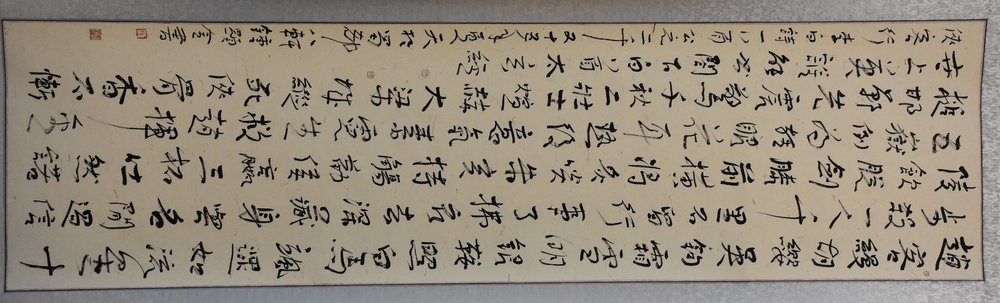 趙客縵胡纓吳鉤霜雪明銀鞍照白馬颯沓如流星十
步殺一人千里不留行事了拂衣去深藏身與名閒過信
陵飲脫劍膝前橫將炙啖朱亥持觴勸侯嬴三杯吐然諾
五嶽倒為輕眼花耳熱後意氣素霓生救趙揮金
槌邯鄲先震驚千秋二壯士烜赫大梁城縱死俠骨香不慚
世上英誰能書閣下白首太玄經
俠客行李白詩一首公元二千